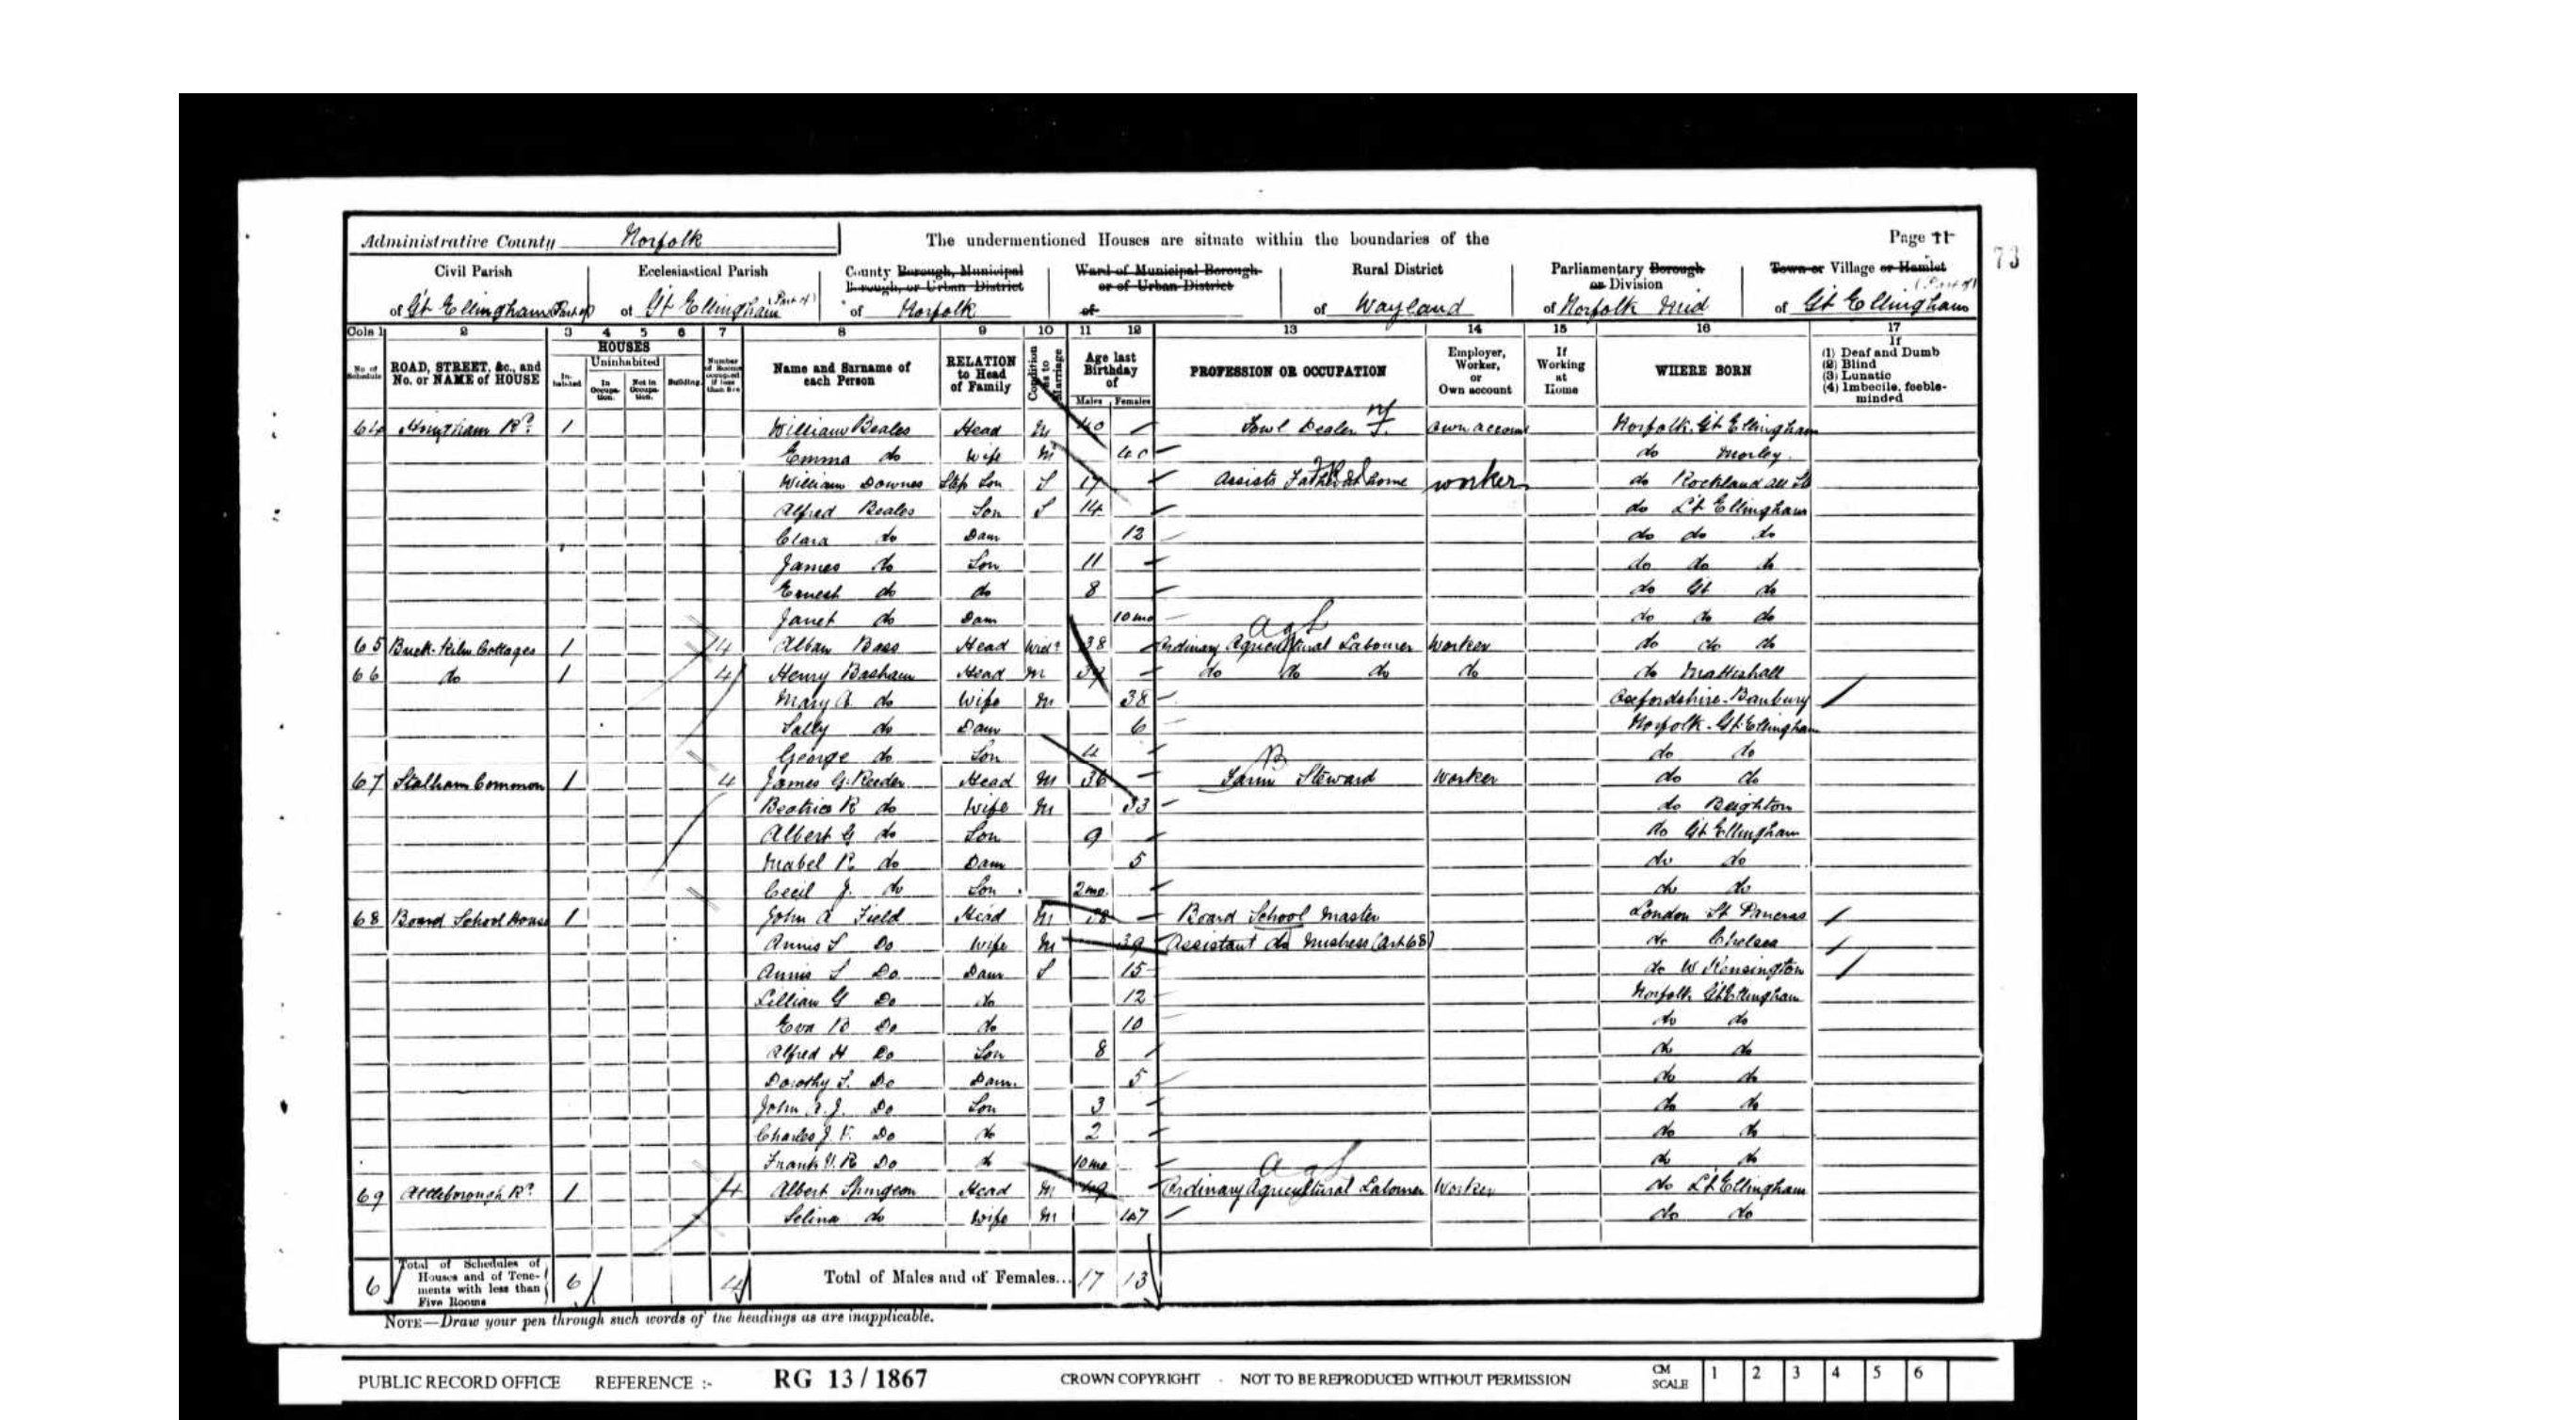 Administrative County Norfolk The undermentioned Houses are situate within the boundaries of the Page 11
73
Civil Parish Ecclesiastical Parish County Borough, Municipal Borough, or Urban District Ward of Municipal Borough or of Urban District Rural District Parliamentary Borough or Division Town or Village or Hamlet
of Gt Ellingham (Part of) of Gt Ellingham (Part of) of Norfolk of of Wayland of Norfolk Mid of Gt Ellingham (Part of)
Cols 1 2 3 4 5 6 7 8 9 10 11 12 13 14 15 16 17
No. of Schedule ROAD, STREET, &c., and No. or NAME of HOUSE HOUSES In-habited Uninhabited In Occupa-tion. Not in Occupa-tion. Building. Number of Rooms occupied if less than five Name and Surname of each Person RELATION to Head of Family Condition as to Marriage Age last Birthday of Males Females PROFESSION OR OCCUPATION Employer, Worker, or Own account If Working at Home WHERE BORN If (1) Deaf and Dumb (2) Blind (3) Lunatic (4) Imbecile, feeble-minded
64 Hingham Rd 1 William Beales Head M 40 Fowl Dealer own account Norfolk Gt Ellingham
Emma do Wife M 40 do Morley
William Downes Step Son S 17 Assists Father at home worker do Rockland All St
Alfred Beales Son S 14 do Lt Ellingham
Clara do Daur 12 do do do
James do Son 11 do do do
Ernest do do 8 do Gt do
Janet do Daur 10 mo do do do
65 Buck-Kiln Cottages 1 4 Alban Bass Head Widr 38 Ordinary Agricultural Labourer Worker do do do
66 do 1 4 Henry Basham Head M 39 do do do do do Mattishall
Mary A. do Wife M 38 Oxfordshire-Banbury
Sally do Daur 6 Norfolk-Gt Ellingham
George do Son 4 do do
67 Stalham Common 1 4 James G. Reeder Head M 36 Farm Steward Worker do do
Beatrice R do Wife M 33 do Beighton
Albert G do Son 9 do Gt Ellingham
Mabel R. do Daur 5 do do
Cecil J. do Son 2 mo. do do
68 Board School House 1 John A Field Head M Board School Master London St Pancras
Annis S Do Wife M 39 Assistant do Mistress (Art 68) do Chelsea
Annis S Do Daur S 15 do W Kensington
Lillian G Do do 12 Norfolk Gt Ellingham
Eva B Do do 10 do do
Alfred H Do Son 8 do do
Dorothy S. Do Daur. 5 do do
John A. J. Do Son 3 do do
Charles J. V. Do do 2 do do
Frank V. R Do do 10 mo do do
69 Attleborough Rd 1 4 Albert Spurgeon Head M 49 Ordinary Agricultural Labourer Worker do Lt Ellingham
Selina do Wife M 47 do do
6 Total of Schedules of Houses and of Tene-ments with less than Five Rooms 6 4 Total of Males and of Females... 17 13
NOTE—Draw your pen through such words of the headings as are inapplicable.
PUBLIC RECORD OFFICE REFERENCE :- RG 13/1867 CROWN COPYRIGHT - NOT TO BE REPRODUCED WITHOUT PERMISSION CM SCALE 1 2 3 4 5 6